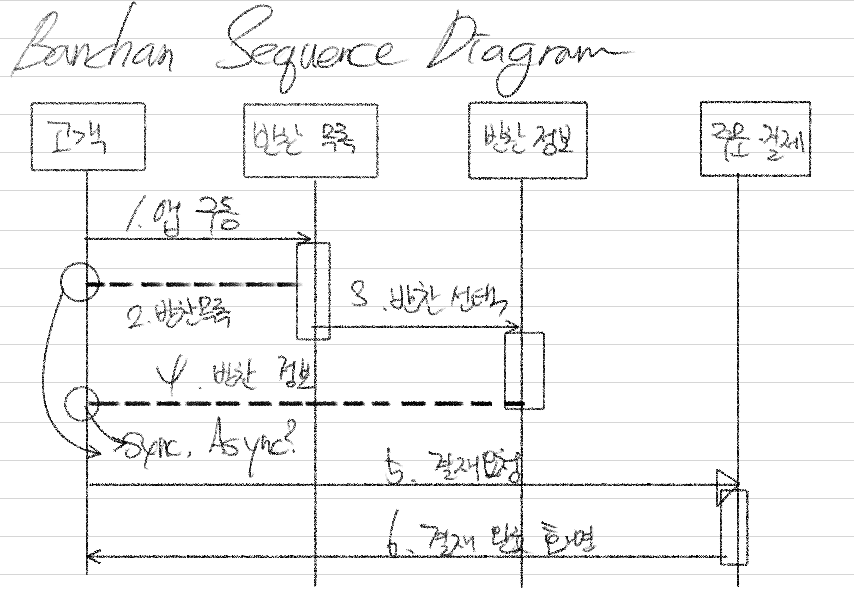 Banchan Sequence Diagram
고객
반찬 목록
반찬 정보
주문 결제
1. 앱 구동
2. 반찬목록
3. 반찬 선택
4. 반찬 정보
Sync, Async?
5. 결재요청
6. 결재 완료 화면